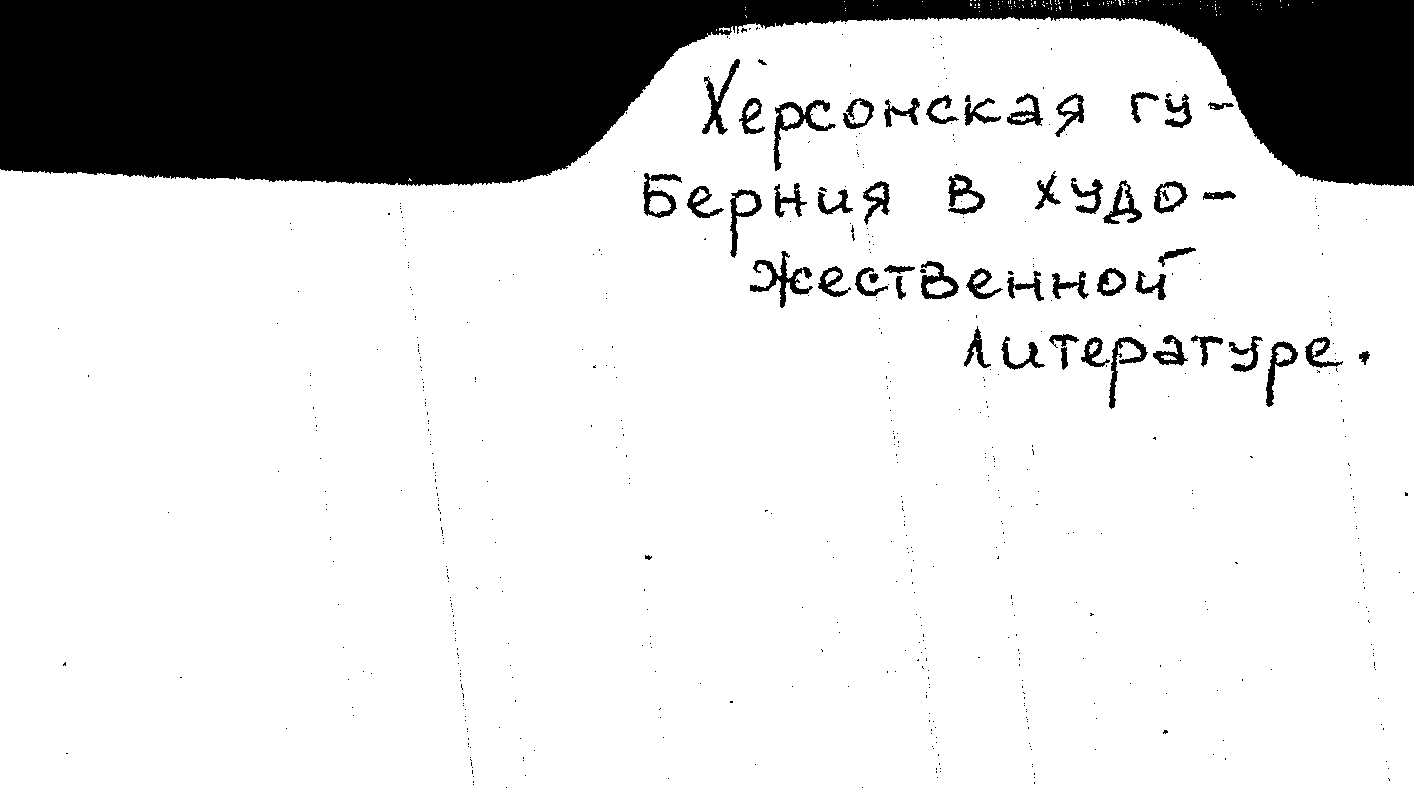 Херсонская гу-
берния в худо-
жественной
литературе.